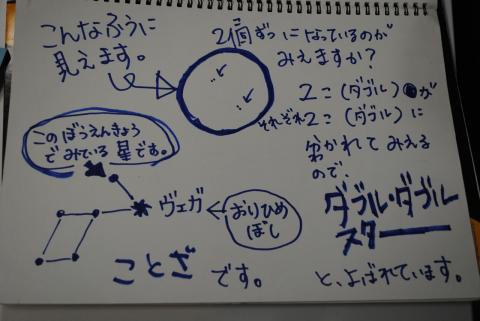 こんなふうに
見えます。
2個ずつになっているのが
みえますか?
2=(ダブル)が
それぞれ2=(ダブル)に
分かれてみえる
ので、
ダブル・ダブル
スター
と、よばれています。
このぼうえんきょう
でみている星です。
ヴェガ
おりひめ
ぼし
ことざ です。